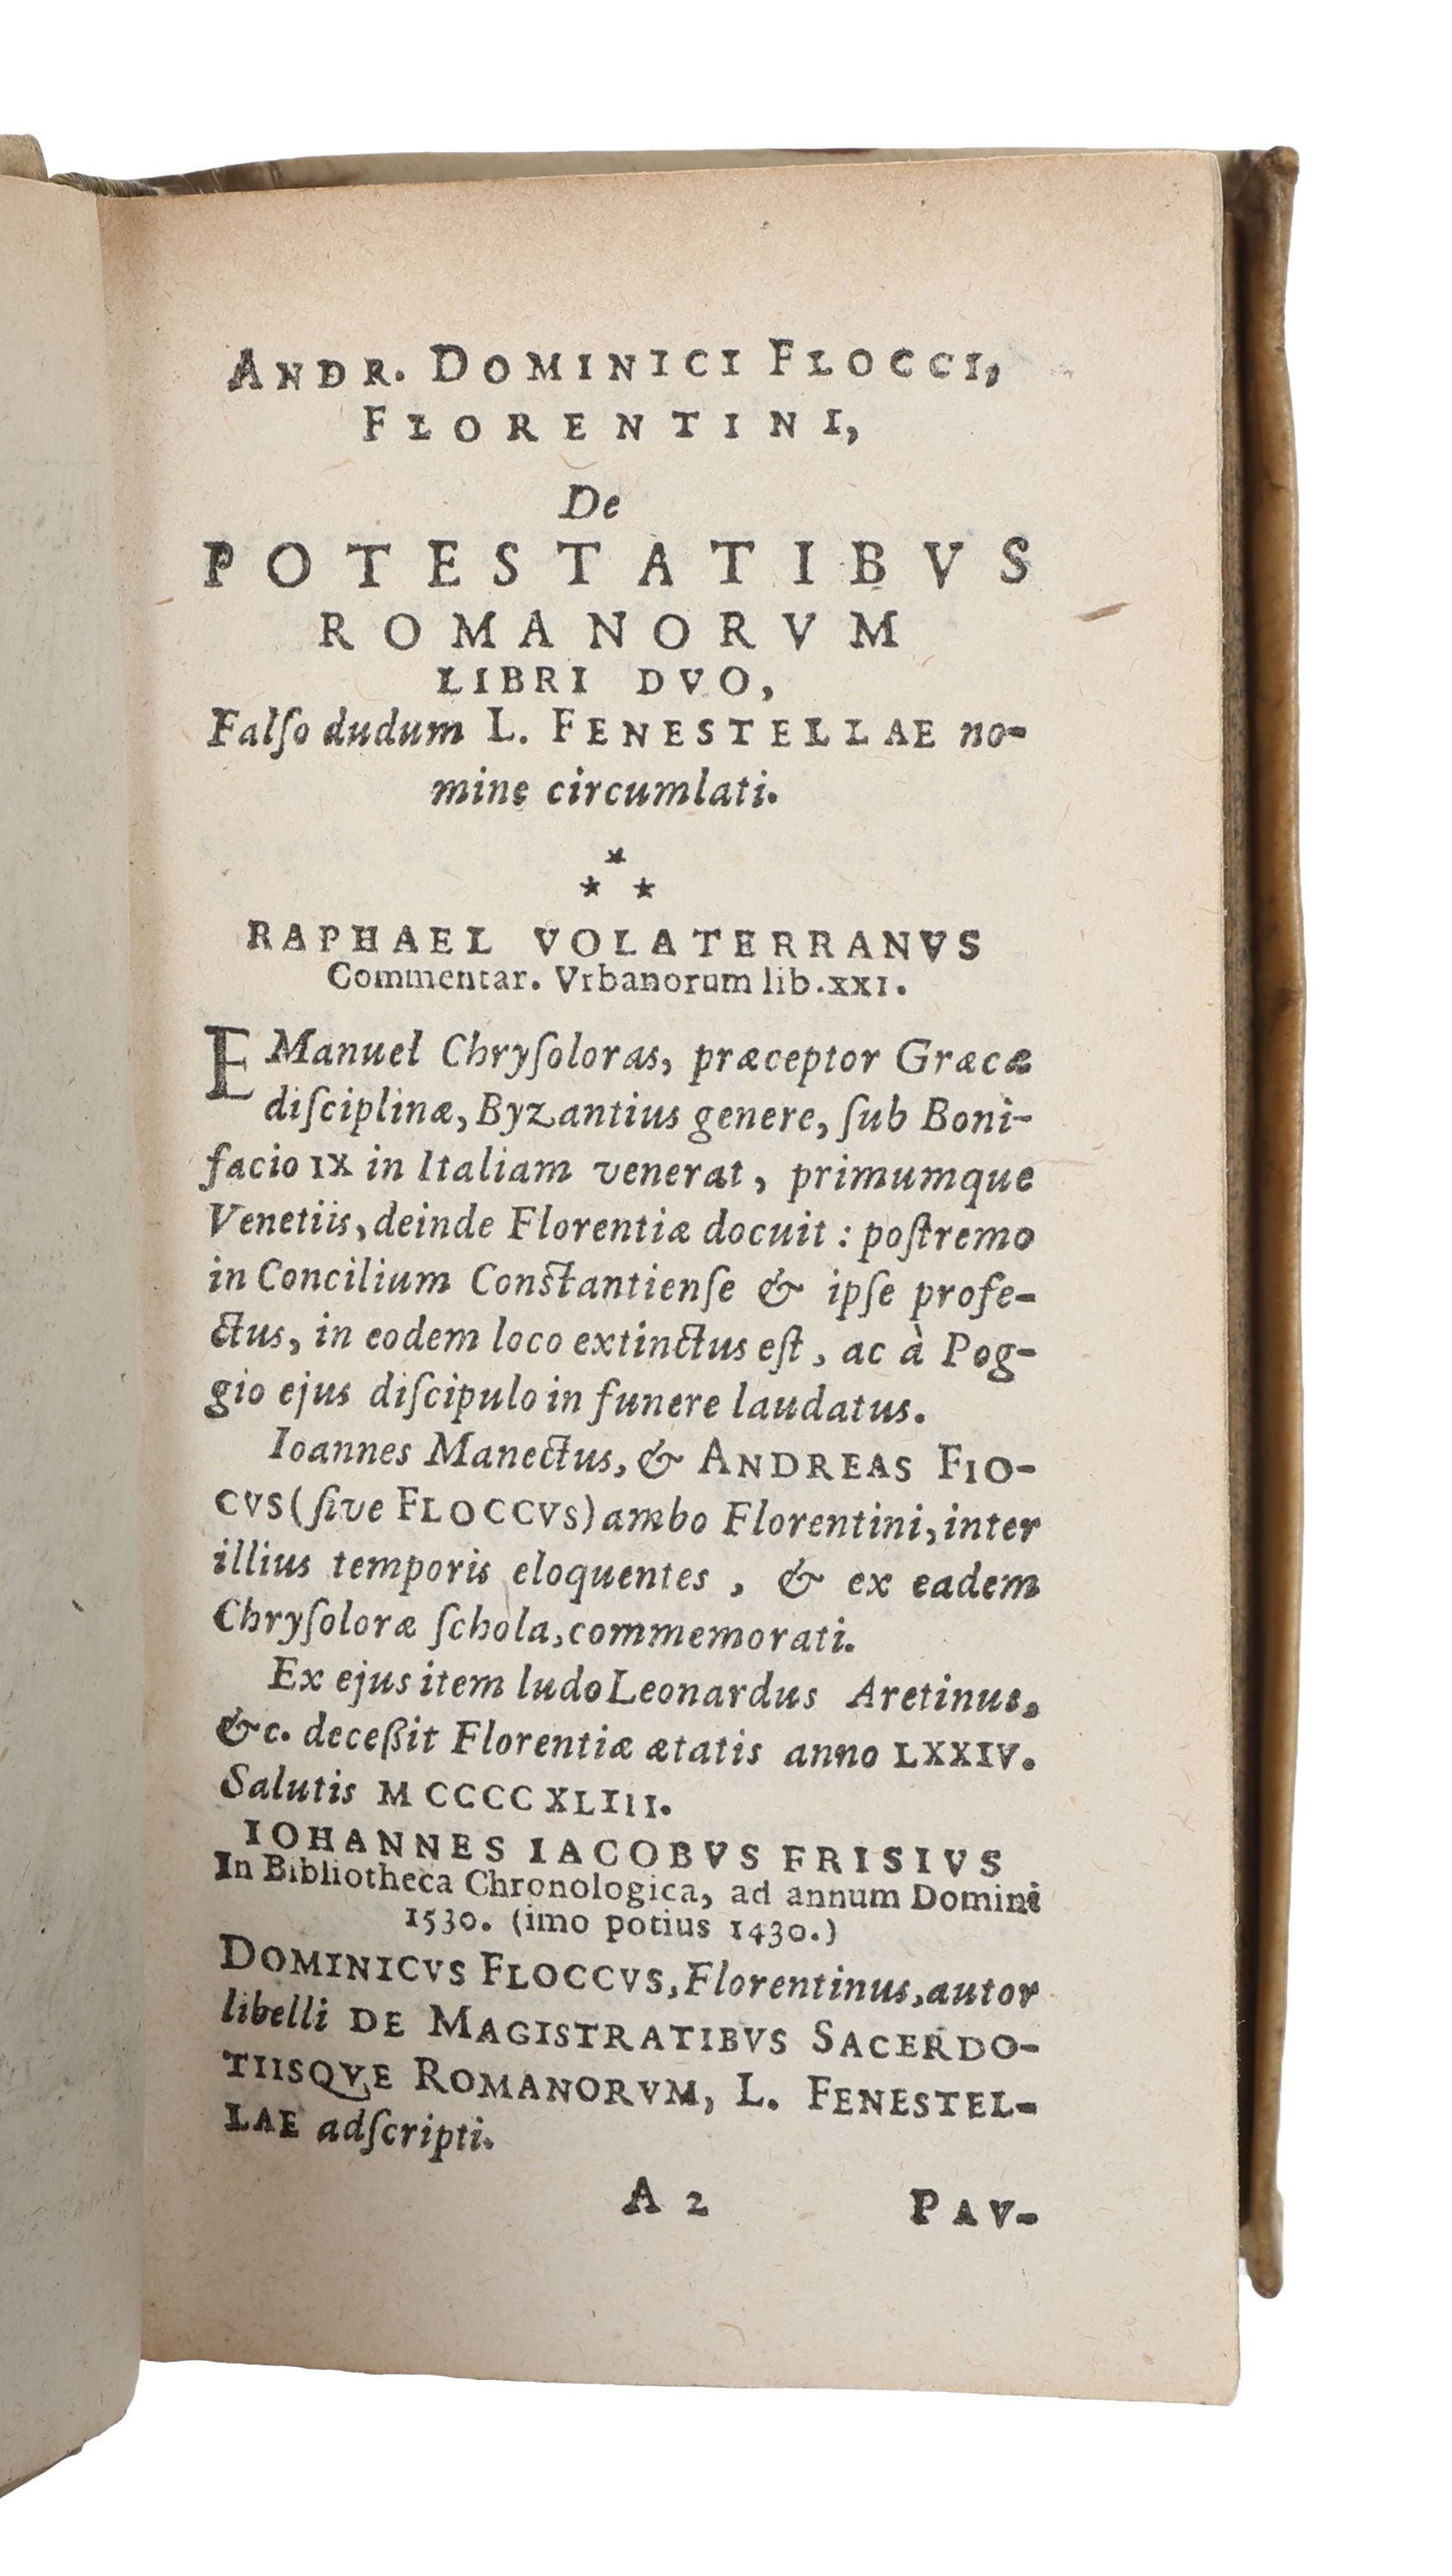 ANDR. DOMINICI FLOCCI,
FLORENTINI,
De
POTESTATIBVS
ROMANORVM
LIBRI DVO,
Falſo dudum L. FENESTELLAE no-
mine circumlati.
* * *
RAPHAEL VOLATERRANVS
Commentar. Vrbanorum lib.XXI.
EManuel Chryſoloras, præceptor Græcæ
diſciplinæ, Byzantius genere, ſub Boni-
facio IX in Italiam venerat, primumque
Venetiis, deinde Florentiæ docuit : poſtremo
in Concilium Conſtantienſe & ipſe profe-
ctus, in eodem loco extinctus eſt, ac à Pog-
gio ejus diſcipulo in funere laudatus.
Ioannes Manectus, & ANDREAS FIO-
CVS (ſive FLOCCVS) ambo Florentini, inter
illius temporis eloquentes, & ex eadem
Chryſoloræ ſchola, commemorati.
Ex ejus item ludo Leonardus Aretinus,
&c. deceßit Florentiæ ætatis anno LXXIV.
Salutis MCCCCXLIII.
IOHANNES IACOBVS FRISIVS
In Bibliotheca Chronologica, ad annum Domini
1530. (imo potius 1430.)
DOMINICVS FLOCCVS, Florentinus, autor
libelli DE MAGISTRATIBVS SACERDO-
TIISQVE ROMANORVM, L. FENESTEL-
LAE adſcripti.
A 2 PAV-